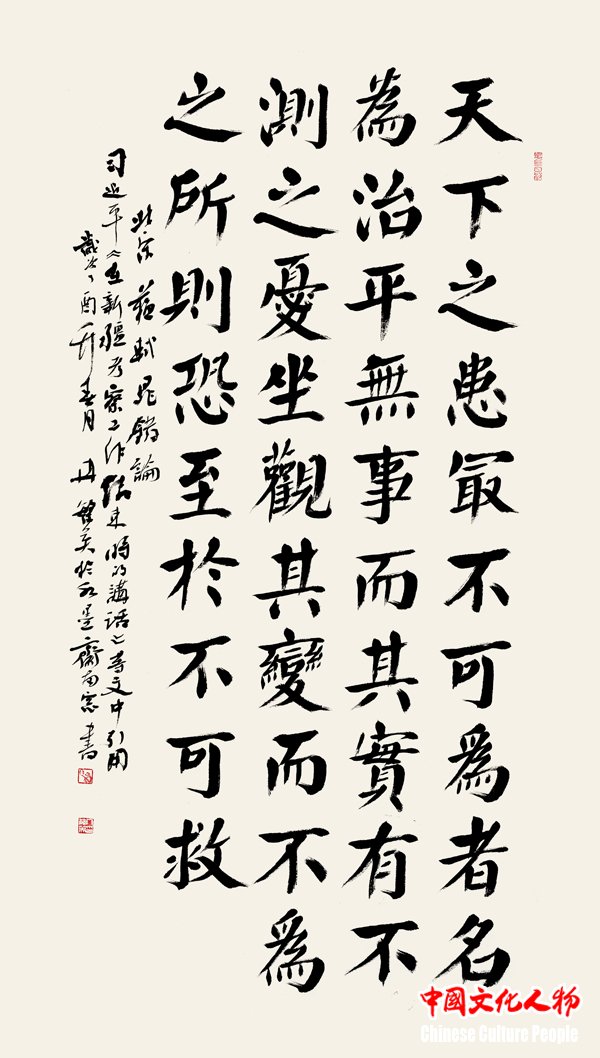 天下之患冣不可爲者名
為治平無事而其實有不
測之憂坐觀其變而不爲
之所則恐至於不可救
北宋蘇軾晁錯論
习近平《在新疆考察工作结束時的講話》等文中引用
歲次丁酉年春月冉英於水墨齋南窓書
中國文化人物
Chinese Culture People